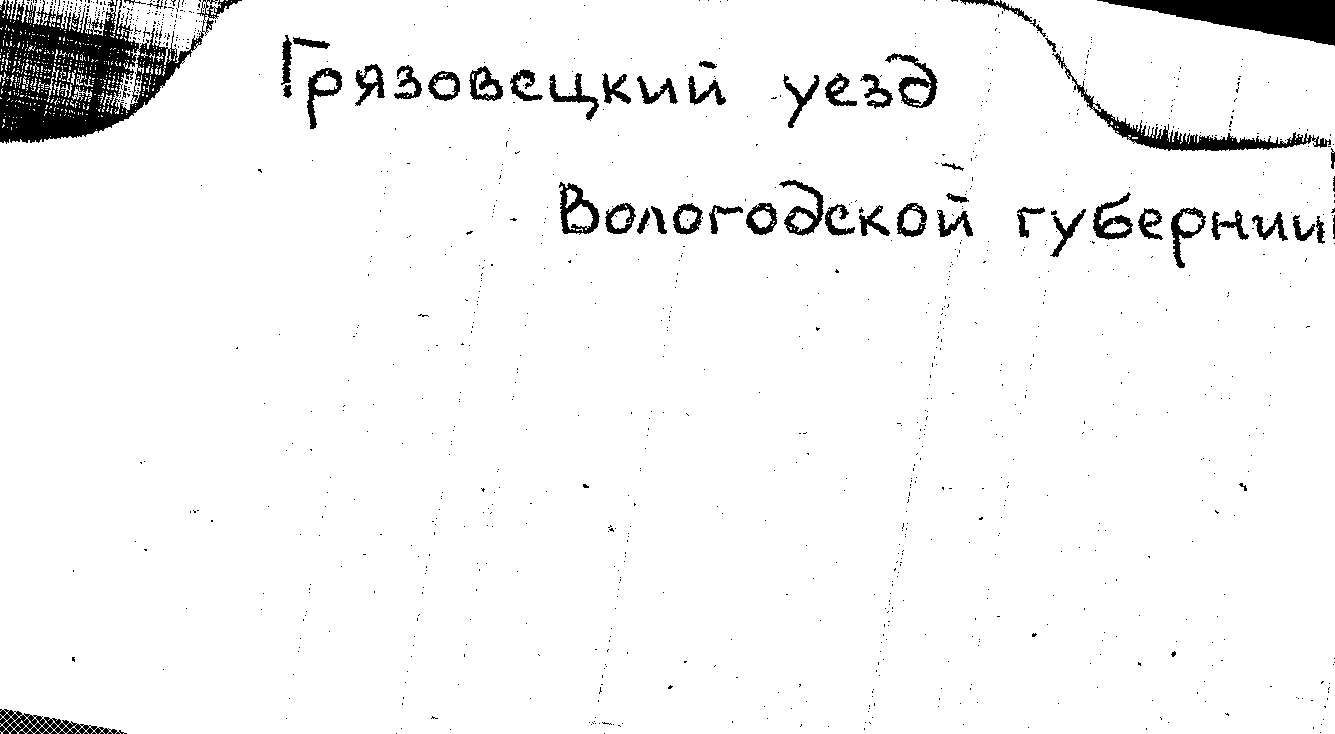 Грязовецкий уезд
Вологодской губернии